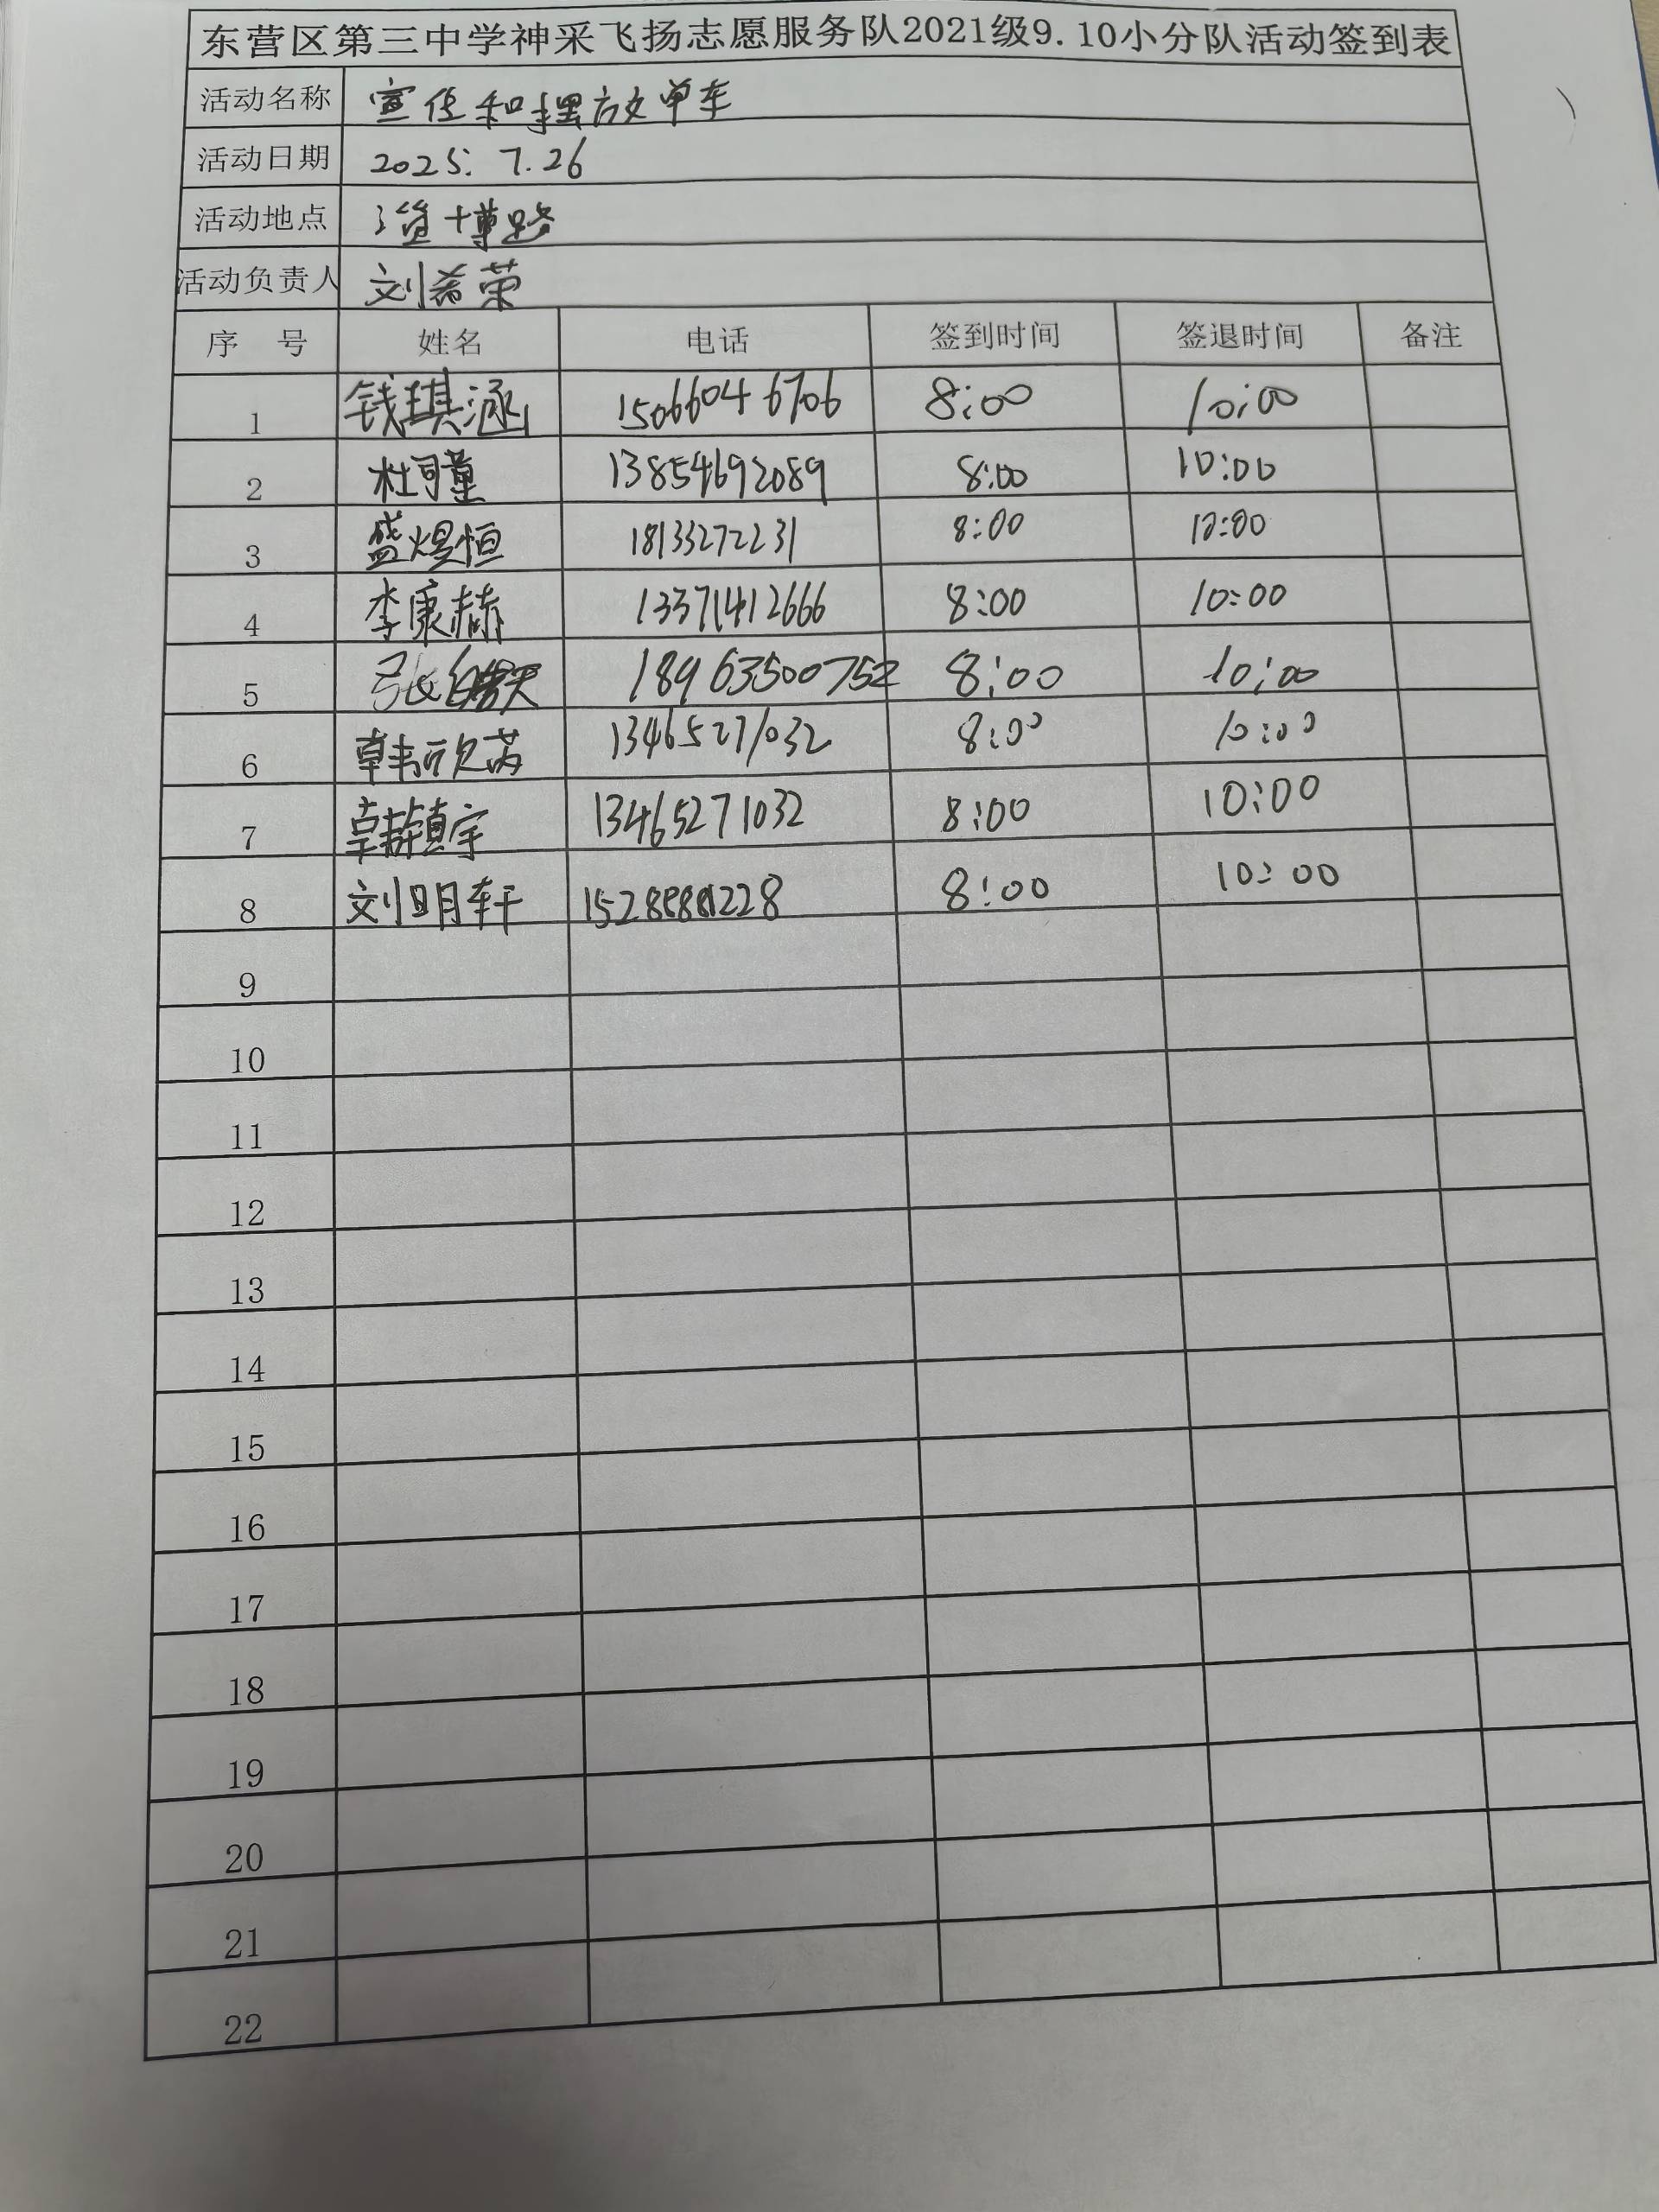 东营区第三中学神采飞扬志愿服务队2021级9.10小分队活动签到表
活动名称 宣传和摆放单车
活动日期 2025.7.26
活动地点 淄博路
活动负责人 刘希荣
序 号 姓名 电话 签到时间 签退时间 备注
1 钱琪涵 15066046706 8:00 10:00
2 杜可量 13854692089 8:00 10:00
3 盛煜恒 18133272231 8:00 10:00
4 李康赫 13371412666 8:00 10:00
5 张皓天 18963500752 8:00 10:00
6 韩欣芮 13465271032 8:00 10:00
7 韩镇宇 13465271032 8:00 10:00
8 刘明轩 8:00 10:00
9
10
11
12
13
14
15
16
17
18
19
20
21
22